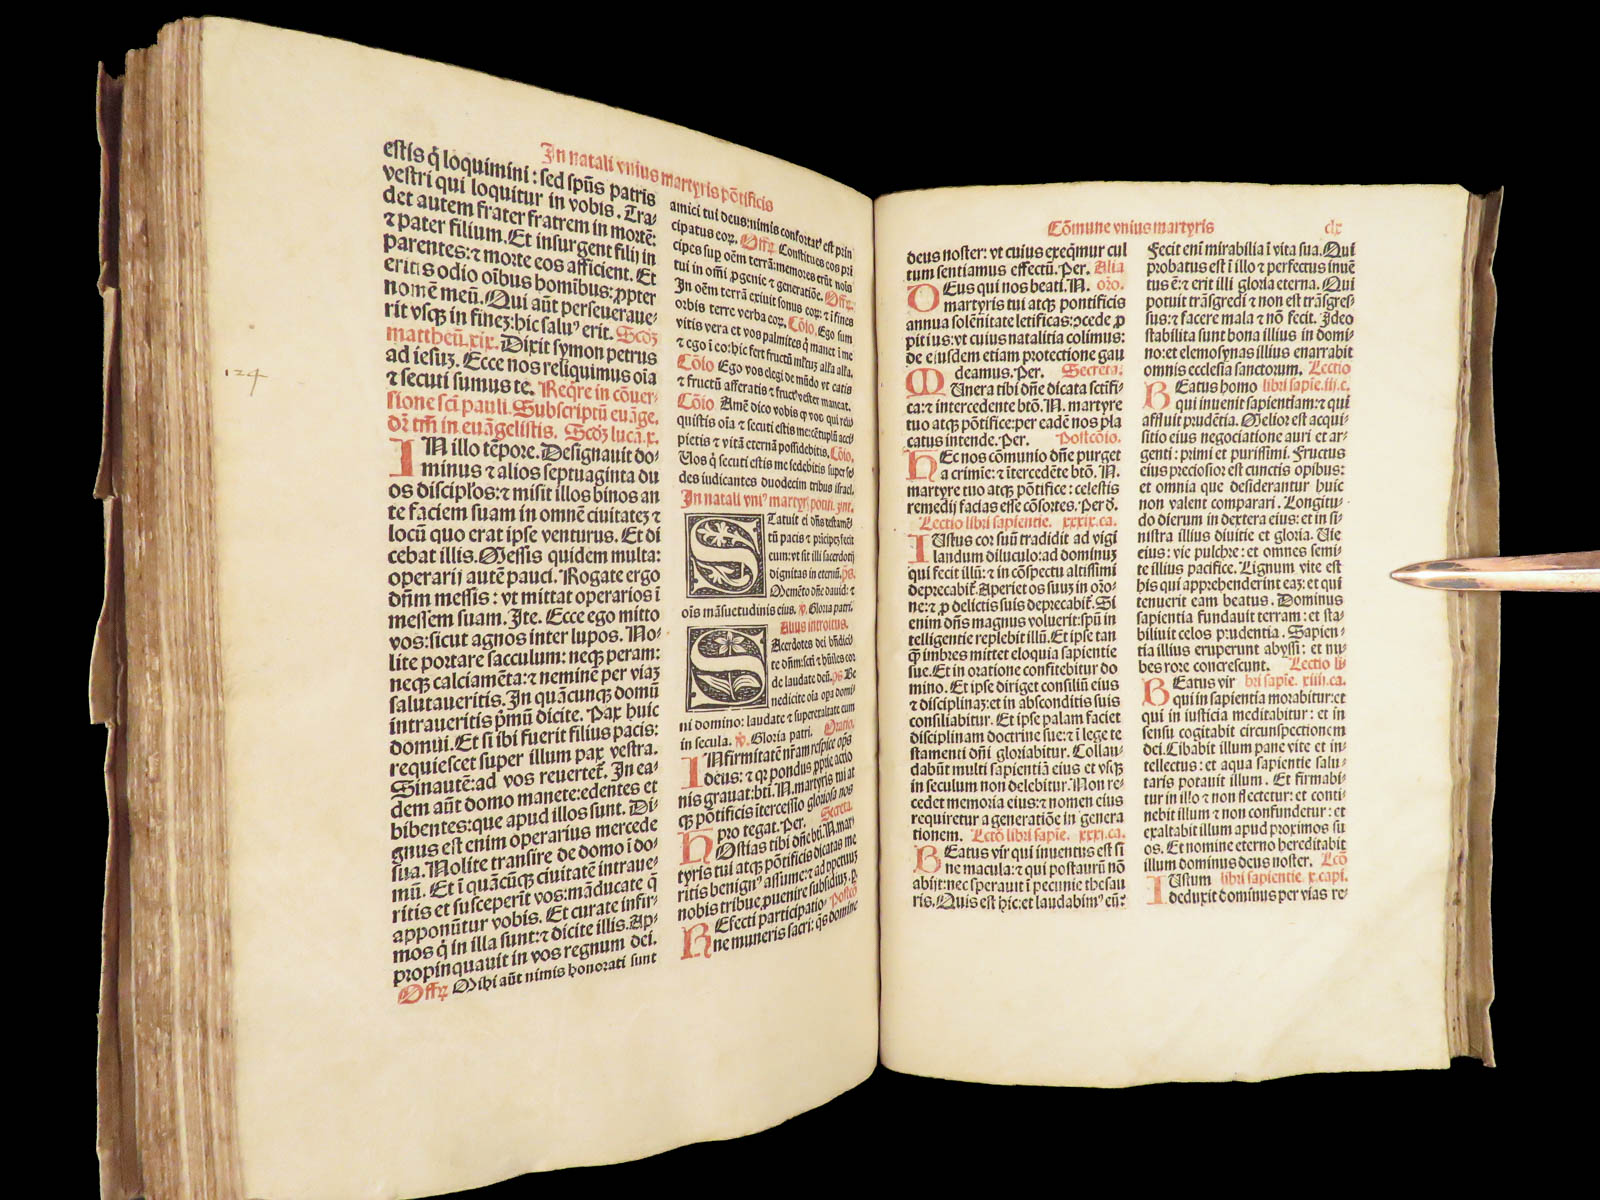 In natali vnius martyris põtificis
estis q̃ loquimini: sed spũs patris
vestri qui loquitur in vobis. Tra-
det autem frater fratrem in mortẽ:
⁊ pater filium. Et insurgent filij in
parentes: ⁊ morte eos afficient. Et
eritis odio oĩbus hominibus: ꝓpter
nomẽ meũ. Qui aũt perseuerave-
rit vsqꝫ in fineꝫ: hic saluꝰ erit. Scđꝫ
mattheũ.xix. Dixit symon petrus
ad iesuꝫ. Ecce nos reliquimus oĩa
⁊ secuti sumus te. Reqͥre in cõuer-
sione scĩ pauli. Subscriptũ euãge.
dr̃ tm̃ in euãgelistis. Scđꝫ luca.x.
IN illo tẽpore. Designauit do-
minus ⁊ alios septuaginta du
os discipl̃os: ⁊ misit illos binos an
te faciem suam in omnẽ ciuitateꝫ ⁊
locũ quo erat ipse venturus. Et di
cebat illis. Messis quidem multa:
operarij autẽ pauci. Rogate ergo
dñm messis: vt mittat operarios ĩ
messem suam. Ite. Ecce ego mitto
vos: sicut agnos inter lupos. No-
lite portare sacculum: neqꝫ peram:
neqꝫ calciamẽta: ⁊ neminẽ per viaꝫ
salutaueritis. In quãcunqꝫ domũ
intraueritis pͥmũ dicite. Pax huic
domui. Et si ibi fuerit filius pacis:
requiescet super illum pax vestra.
Sinautẽ: ad vos reuertet᷑. In ea-
dem aũt domo manete: edentes et
bibentes: que apud illos sunt. Di-
gnus est enim operarius mercede
sua. Nolite transire de domo ĩ do-
mũ. Et ĩ quãcũqꝫ ciuitatẽ intraue-
ritis et susceperĩt vos: mãducate q̃
apponũtur vobis. Et curate infir-
mos q̃ in illa sunt: ⁊ dicite illis. Ap-
propinquauit in vos regnum dei.
Offꝝ Mihi aũt nimis honorati sunt
124
amici tui deus: nimis confortatꝰ est prin
cipatus eoꝝ. Offꝝ Constitues eos pri
cipes suꝑ oẽm terrã: memores erũt nois
tui in om̃i ꝓgenie ⁊ generatiõe. Offꝝ
In oẽm terrã exiuit sonus eoꝝ: ⁊ ĩ fines
orbis terre verba eoꝝ. Cõĩo. Ego sum
vitis vera et vos palmites q̃ manet ĩ me
⁊ ego ĩ eo: hic fert fructũ multuꝫ alľa alľa.
Cõĩo Ego vos elegi de mũdo vt eatis
⁊ fructũ afferatis ⁊ fructꝰ vester maneat.
Cõĩo Amẽ dico vobis qꝫ vos qui reli
quistis oĩa ⁊ secuti estis me: cẽtuplũ acci
pietis ⁊ vitã eternã possidebitis. Cõĩo.
Uos q̃ secuti estis me sedebitis super se
des iudicantes duodecim tribus israel.
In natali vniꝰ martyrꝫ pontifi. ĩnt.
STatuit ei dñs testamẽ
tũ pacis ⁊ pͥncipeꝫ fecit
eum: vt sit illi sacerdotij
dignitas in eternũ. p̃s.
Memẽto dñe dauid: ⁊
oĩs mãsuetudinis eius. ℣. Gloria patri.
Alius introitus.
SAcerdotes dei bñdici-
te dñm: scĩ ⁊ hũiles cor
de laudate deũ. p̃s Be
nedicite oĩa opa domi-
ni domino: laudate ⁊ superexaltate eum
in secula. ℣. Gloria patri. Oratio.
INfirmitatẽ nr̃am respice oĩps
deus: ⁊ qꝫ pondus ꝓprie actio
nis grauat: bti. N. martyris tui at
qꝫ põtificis ĩtercessio gloriosa nos
pro tegat. Per. Secreta.
HOstias tibi dñe bti. N. mar-
tyris tui atqꝫ põtificis dicatas me
ritis benignꝰ assume: ⁊ ad ꝑpetuuꝫ
nobis tribue ꝓuenire subsidiuꝫ. ꝑ.
Postcõ
REfecti participatiõ
ne muneris sacri: qͣs domine
Cõmune vnius martyris clx
deus noster: vt cuius exeqmur cul
tum sentiamus effectũ. Per. Alia
DEus qui nos beati. N. oro.
martyris tui atqꝫ pontificis
annua solẽnitate letificas: ↄcede ꝓ
pitius: vt cuius natalitia colimus:
de eiusdem etiam protectione gau
deamus. Per. Secreta.
MUnera tibi dñe dicata sctifi-
ca: ⁊ intercedente btõ. N. martyre
tuo atqꝫ põtifice: per eadẽ nos pla
catus intende. Per. Postcõĩo.
HEc nos cõmunio dñe purget
a crimĩe: ⁊ ĩtercedẽte btõ. N.
martyre tuo atqꝫ põtifice: celestis
remedij facias esse cõsortes. Per đ.
Lectio libri sapientie. xxxix.ca.
IUstus cor suũ tradidit ad vigi
landum diluculo: ad dominuꝫ
qui fecit illũ: ⁊ in cõspectu altissimi
deprecabit᷑. Aperiet os suuꝫ in oro-
ne: ⁊ ꝓ delictis suis deprecabit᷑. Si
enim dñs magnus voluerit: spũ in
telligentie replebit illũ. Et ipse tan
q̃ imbres mittet eloquia sapientie
sue. Et in oratione confitebitur do
mino. Et ipse diriget consiliũ eius
⁊ disciplinaꝫ: et in absconditis suis
consiliabitur. Et ipse palam faciet
disciplinam doctrine sue: ⁊ ĩ lege te
stamenti dñi gloriabitur. Collau-
dabũt multi sapientiã eius et vsqꝫ
in seculum non delebitur. Non re-
cedet memoria eius: ⁊ nomen eius
requiretur a generatiõe in genera
tionem. Lectõ libri sapie. xxxi.ca.
BEatus vir qui inuentus est si
ne macula: ⁊ qui post aurũ nõ
abijt: nec sperauit ĩ pecunie thesau
ris. Quis est hic: et laudabimꝰ eũ:
Fecit enĩ mirabilia ĩ vita sua. Qui
probatus est ĩ illo ⁊ perfectus inuẽ
tus ẽ: ⁊ erit illi gloria eterna. Qui
potuit trãsgredi ⁊ non est trãsgres-
sus: ⁊ facere mala ⁊ nõ fecit. Ideo
stabilita sunt bona illius in domi-
no: et elemosynas illius enarrabit
omnis ecclesia sanctorum. Lectio
BEatus homo libri sapie.iii.c.
qui inuenit sapientiam: ⁊ qui
affluit prudẽtia. Melior est acqui-
sitio eius negociatione auri et ar-
genti: primi et purissimi. Fructus
eius preciosior est cunctis opibus:
et omnia que desiderantur huic
non valent comparari. Longitu-
do dierum in dextera eius: et in si-
nistra illius diuitie et gloria. Uie
eius: vie pulchre: et omnes semi-
te illius pacifice. Lignum vite est
his qui apprehenderint eaꝫ: et qui
tenuerit eam beatus. Dominus
sapientia fundauit terram: et sta-
biliuit celos prudentia. Sapien-
tia illius eruperunt abyssi: et nu-
bes rore concrescunt. Lectio li-
BEatus vir bri sapie. xiiij.ca.
qui in sapientia morabitur: et
qui in iusticia meditabitur: et in
sensu cogitabit circunspectionem
dei. Cibabit illum pane vite et in-
tellectus: et aqua sapientie salu-
taris potauit illum. Et firmabi-
tur in illo ⁊ non flectetur: et conti-
nebit illum ⁊ non confundetur: et
exaltabit illum apud proximos su
os. Et nomine eterno hereditabit
illum dominus deus noster. Lectõ
IUstum libri sapientie x.capi.
deduxit dominus per vias re-